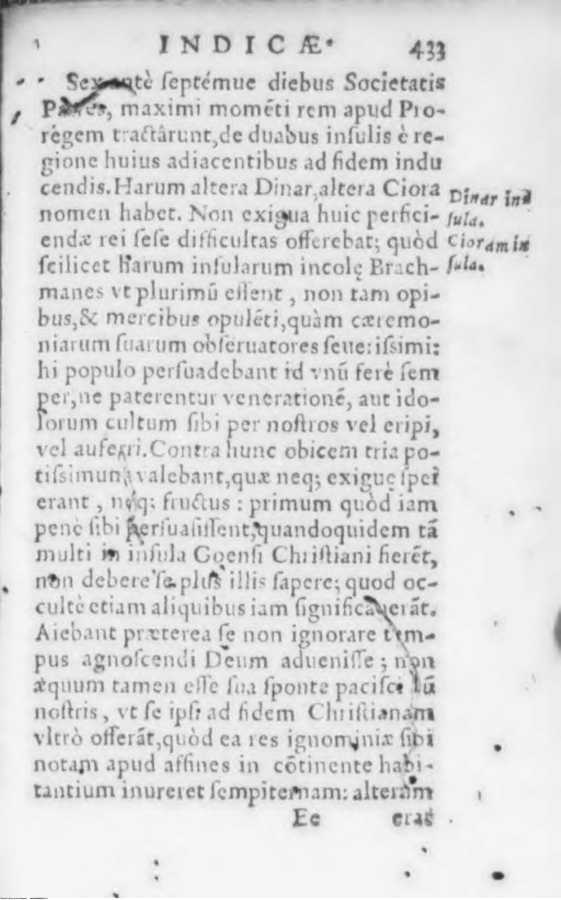 INDICÆ. 433
Sex antè ſeptémue diebus Societatis
Patres, maximi momẽti rem apud Pro-
règem tractârunt, de duabus inſulis è re-
gione huius adiacentibus ad fidem indu
cendis. Harum altera Dinar, altera Ciora
nomen habet. Non exigua huic perfici-
endæ rei ſeſe difficultas offerebat; quòd
ſcilicet harum inſularum incolę Brach-
manes vt plurimũ eſſent, non tam opi-
bus, & mercibus opulẽti, quàm cæremo-
niarum ſuarum obſeruatores ſeueriſsimi:
hi populo perſuadebant id vnũ ferè ſem
per, ne paterentur venerationẽ, aut ido-
lorum cultum ſibi per noſtros vel eripi,
vel auferri. Contra hunc obicem tria po-
tiſsimum valebant, quæ neq; exiguę ſpei
erant, neq; fructus: primum quòd iam
penè ſibi perſuaſiſſent, quandoquidem tã
multi in inſula Goenſi Chriſtiani fierẽt,
non debere ſe plus illis ſapere; quod oc-
cultè etiam aliquibus iam ſignificauerãt.
Aiebant præterea ſe non ignorare tem-
pus agnoſcendi Deum adueniſſe; non
æquum tamen eſſe ſua ſponte paciſci
noſtris, vt ſe ipſi ad fidem Chriſtianam
vltrò offerãt, quòd ea res ignominiæ ſibi
notam apud affines in cõtinente habi-
tantium inureret ſempiternam: alteram
Ee erat
Dinar in
ſula.
Cioram in
ſula.